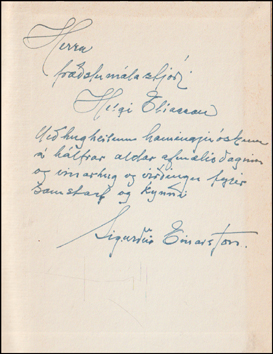 Herra
fræðslumálastjóri
Helgi Elíasson
Með hugheilum hamingjuóskum
á hálfrar aldar afmælisdaginn
og vinarhug og virðingu fyrir
samstarf og kynni
Sigurður Einarsson.